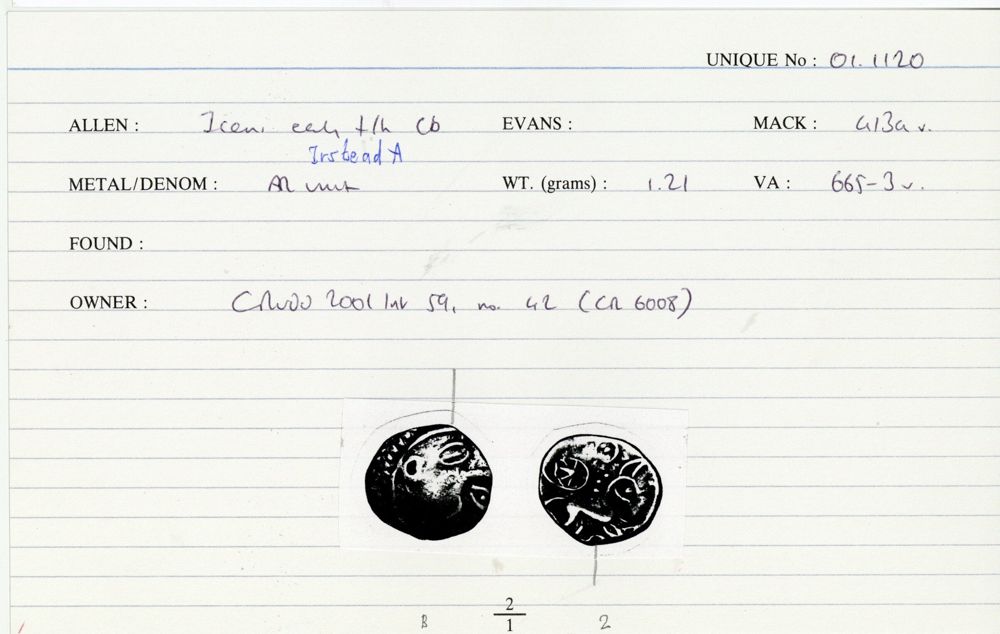 UNIQUE No : 01.1120
ALLEN : Iceni early f/h Cb EVANS : MACK : 413a v.
Irstead A
METAL/DENOM : AR unit WT. (grams) : 1.21 VA : 665-3 v.
FOUND :
OWNER : 2001 59, no. 42 (CR 6008)
2
B 1 2